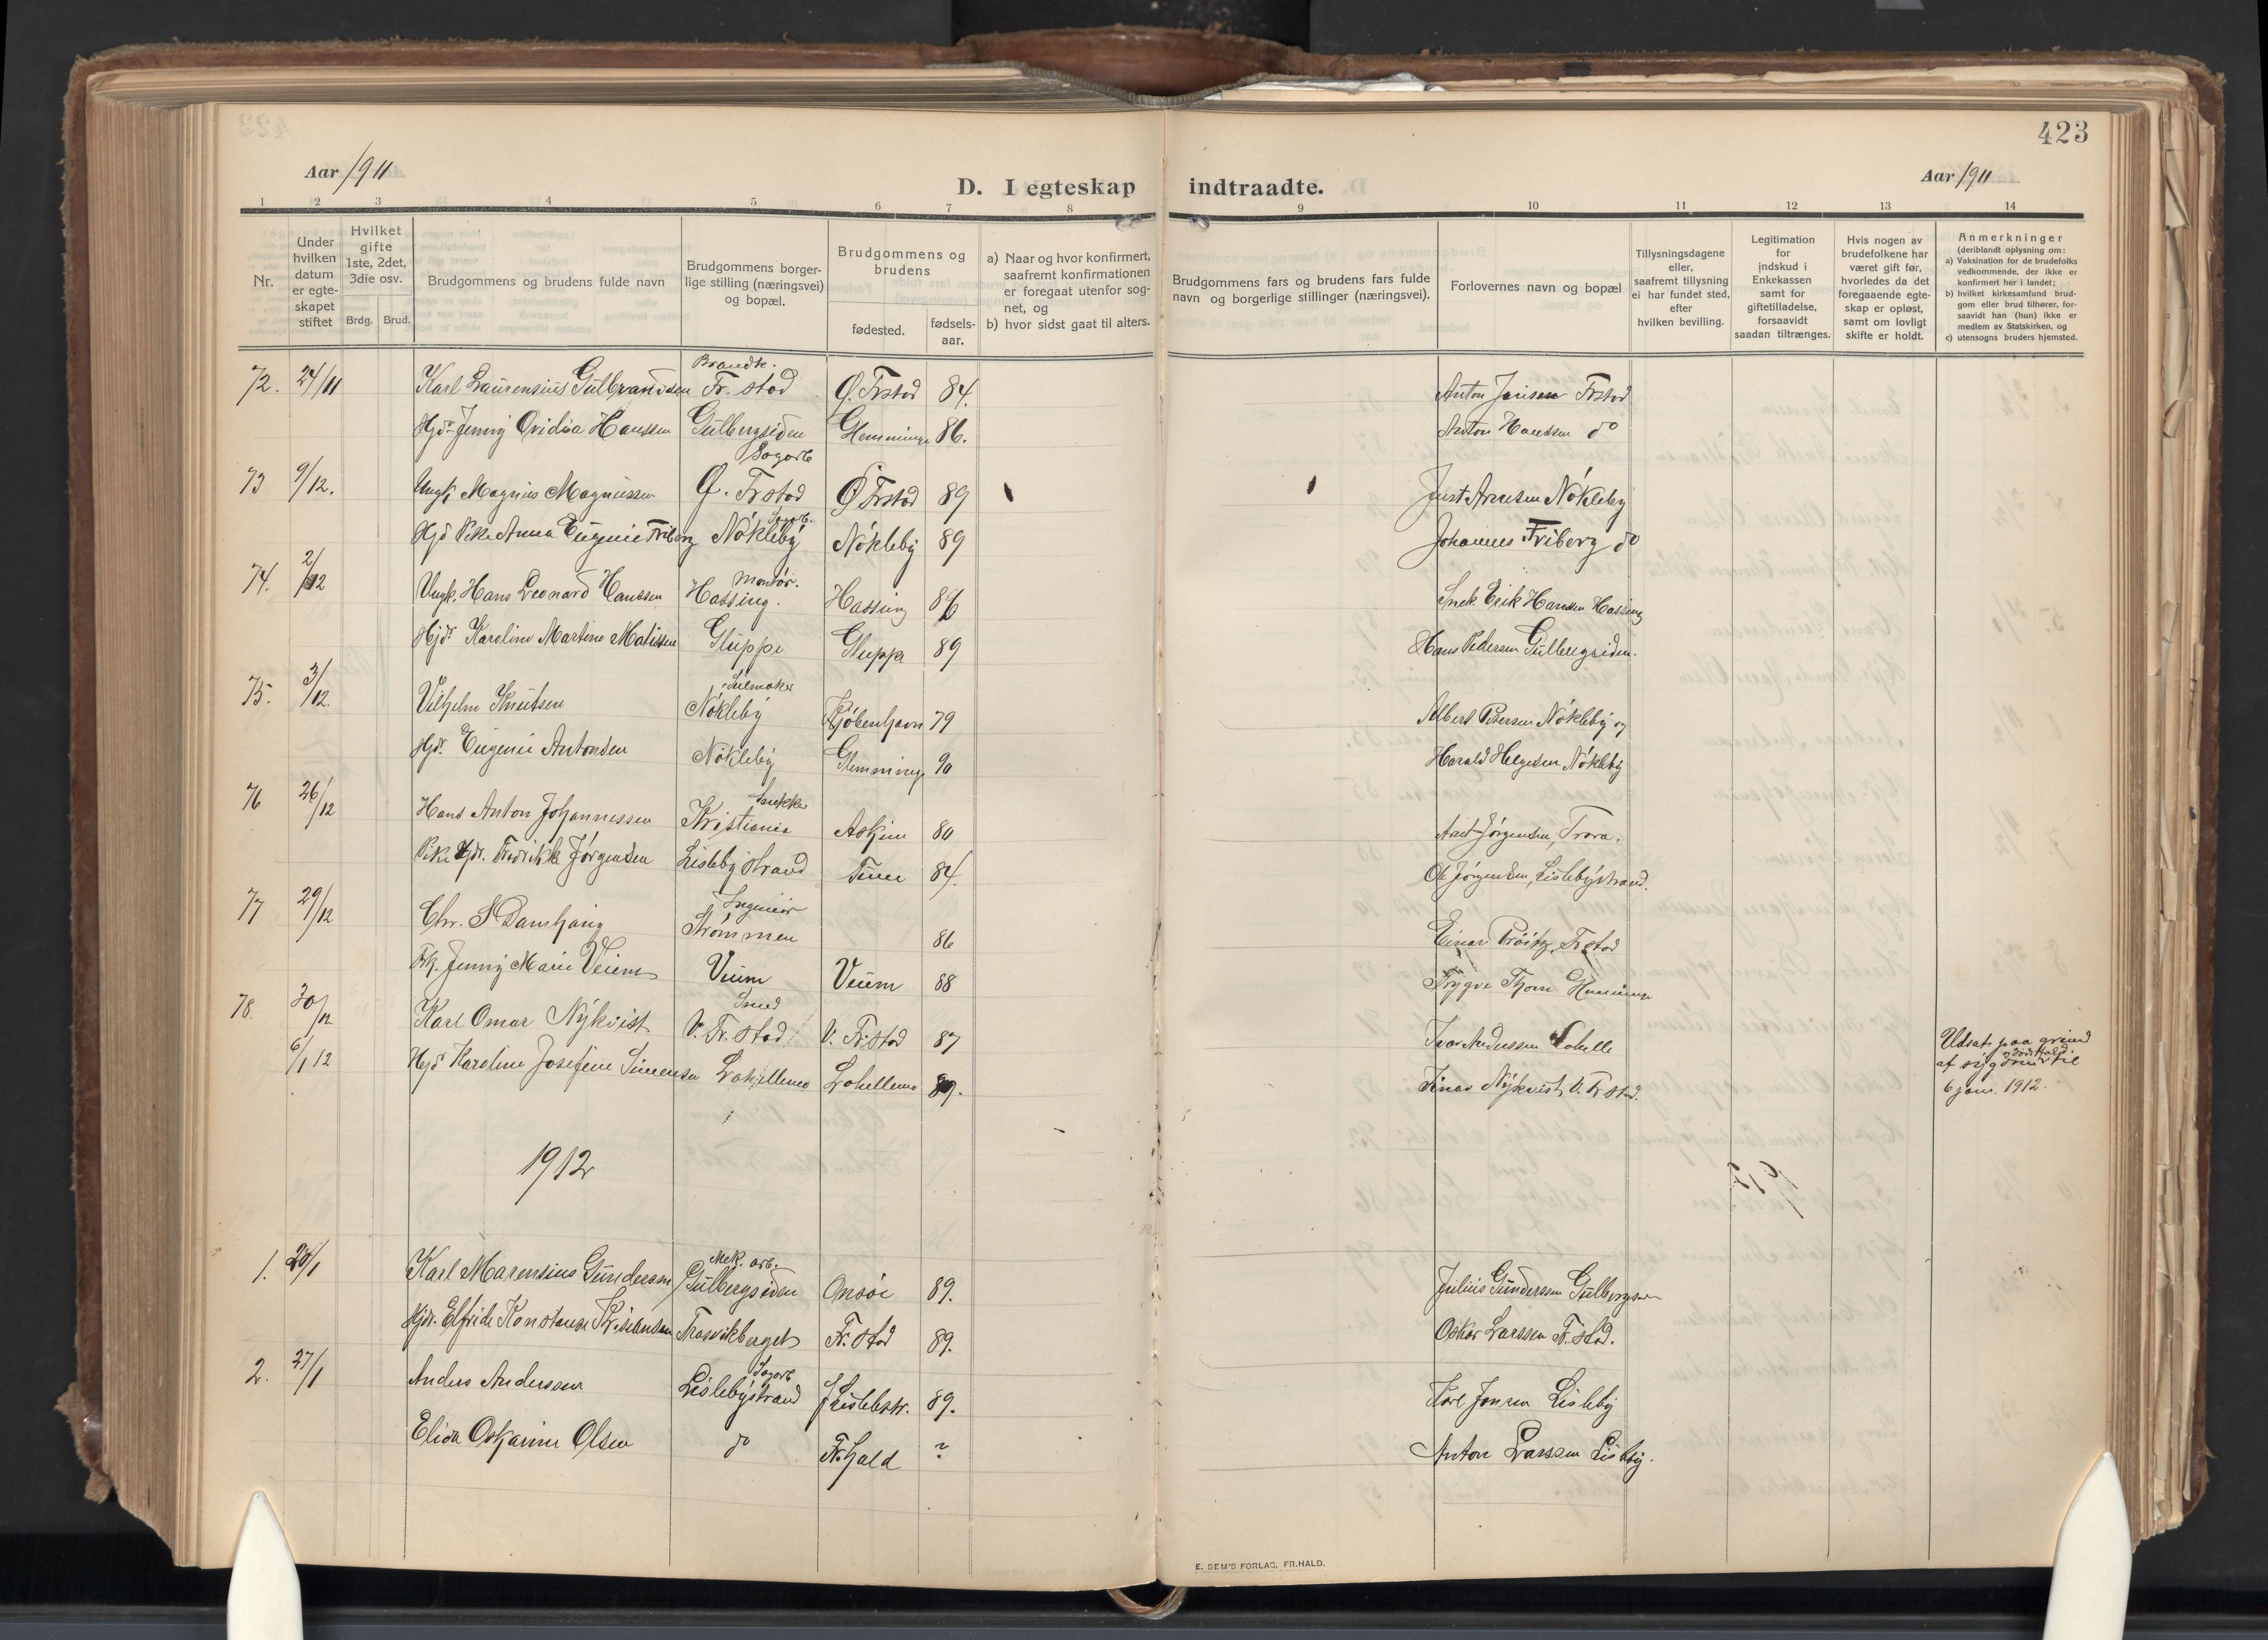 423
Aar 1911
D. I egteskap indtraadte.
Aar 1911
1 2 3 4 5 6 7 8 9 10 11 12 13 14
Nr.
Under hvilken datum er egteskapet stiftet
Hvilket gifte 1ste, 2det, 3die osv.
Brdg. Brud.
Brudgommens og brudens fulde navn
Brudgommens borgerlige stilling (næringsvei) og bopæl.
Brudgommens og brudens
fødested.
fødselsaar.
a) Naar og hvor konfirmert, saafremt konfirmationen er foregaat utenfor sognet, og
b) hvor sidst gaat til alters.
Brudgommens fars og brudens fars fulde navn og borgerlige stillinger (næringsvei).
Forlovernes navn og bopæl
Tillysningsdagene eller, saafremt tillysning ei har fundet sted, efter hvilken bevilling.
Legitimation for indskud i Enkekassen samt for giftetilladelse, forsaavidt saadan tiltrænges.
Hvis nogen av brudefolkene har været gift før, hvorledes da det foregaaende egteskap er opløst, samt om lovligt skifte er holdt.
Anmerkninger
(deriblandt oplysning om:
a) Vaksination for de brudefolks vedkommende, der ikke er konfirmert her i landet;
b) hvilket kirkesamfund brudgom eller brud tilhører, forsaavidt han (hun) ikke er medlem av Statskirken, og
c) utensogns bruders hjemsted.
Brandk.
72. 24/11 Karl Laurensius Gulbrandsen Fr.stad Ø. Frstad 84. Anton Jensen Frstad
Hjdr. Jenny Ovidia Hanssen Gulbergsiden Glemminge 86. Anton Hanssen do
Sagarb
73 9/12. Ungk Magnus Magnussen Ø. Frstad Ø Frstad 89 Just Arnesen Nökleby
Hjd Pike Anna Eugenie Friberg Nökleby Nökleby 89 Johannes Friberg do
Montör.
74. 2/12 Ungk. Hans Leonard Hanssen Hassing. Hassing 86 Snek. Erik Hansen Hassing
Hjdr. Karoline Martine Matissen Gluppe Gluppe 89 Hans Pedersen Gulbergsiden.
Seilmaker
75. 3/12. Vilhelm Knutsen Nökleby Kjöbenhavn 79 Albert Petersen Nökleby og
Hjdr. Eugenie Antonsen Nökleby Glemminge 90 Harald Helgesen Nökleby
Snekker
76 26/12 Hans Anton Johannessen Kristiania Askim 80 Jörgensen, Trara.
Pike Hjdr. Fredrikke Jörgensen Lislebystrand Tune 84. Ole Jörgensen, Lislebystrand.
Ingeniör
77 29/12 Chr. S Damhaug Strömmen 86 Einar Pröitz, Frstad
Frk. Jenny Marie Veum Veum Veum 88 Trygve Thorn
Smed
78. 30/12 Karl Omar Nykvist V. Fr.stad V. Fr.stad 87 Ivar Anderssen
6/1 12 Hjd Karoline Josefine Simensen Lahellemo Lahellemo 89. Einar Nykvist, V. Fr.stad.
Udsat paa grund
af sygdom til
6 jan. 1912.
1912
Mek. arb.
1. 20/1 Karl Marensius Gundersen Gulbergsiden Onsöi 89. Julius Gundersen Gulbergsiden
Hjdr. Elfride Konstanse Kristiansen Trosvikberget Fr.stad 89. Oskar Larssen Fr.stad.
Sagarb
2. 27/1 Anders Anderssen Lislebystrand Lislebstr. 89. Karl Jonsen Lisleby
Elida Oskarine Olsen do Fr.hald ? Anton Larssen Lisleby.
E. SEM'S FORLAG, FR.HALD.